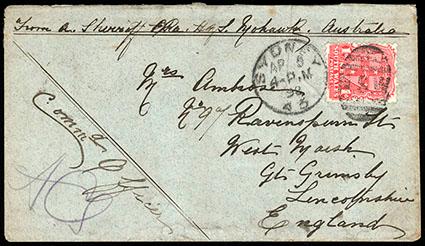 From A. Sherriff Ch. H.M.S. Mohawk. Australia
SYDNEY
AP 5
4-P.M
98
43
Mrs Ambrose
Ravenspurn St
West Marsh
Gt Grimsby
Lincolnshire
England
Comm Officer